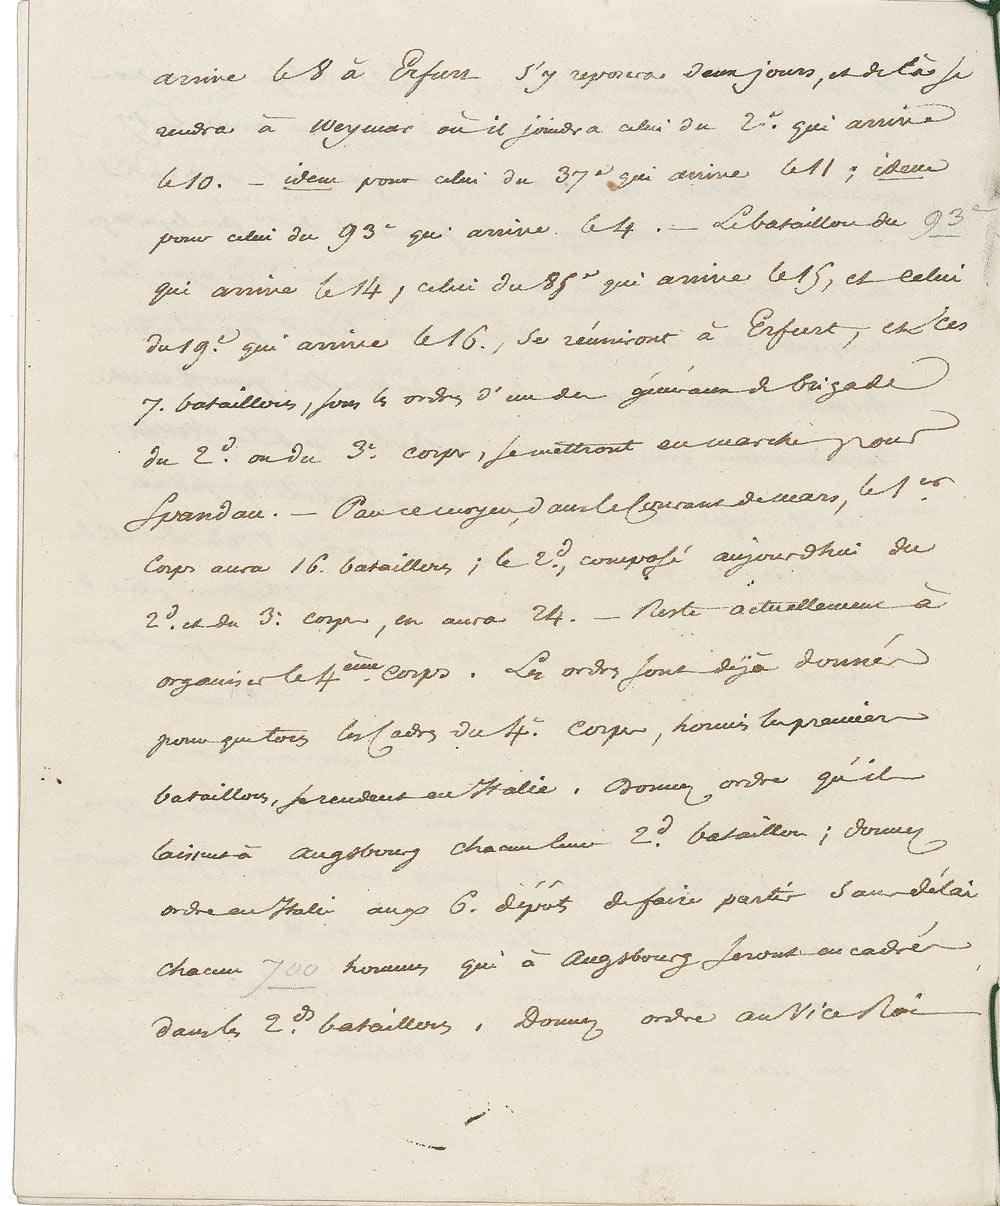 arrive le 8 à Erfurt s'y reposera deux jours, et de là se
rendra à Weymar où il joindra celui du 2.e qui arrive
le 10. — idem pour celui du 37e qui arrive le 11 ; idem
pour celui du 93e qui arrive le 4. — Le bataillon du 93e
qui arrive le 14, celui du 85e qui arrive le 15, et celui
du 19.e qui arrive le 16., se réuniront à Erfurt, et ces
7. bataillons, sous les ordres d'un des généraux de brigade
du 2.d ou du 3.e corps, se mettront en marche pour
Spandau. — Par ce moyen, dans le Courant de mars, le 1er
Corps aura 16. bataillons ; le 2.d, composé aujourd'hui du
2.d et du 3.e corps, en aura 24. — Reste actuellement à
organiser le 4ème corps. Les ordres sont déjà donnés
pour que tous les Cadres du 4.e corps, hormis les premiers
bataillons, se rendent en Italie. Donnez ordre qu'ils
laissent à Augsbourg chacun leur 2.d bataillon ; donnez
ordre en Italie aux 6. dépôts de faire partir sans délai
chacun 700 hommes qui à Augsbourg seront encadrés
dans les 2.ds bataillons. Donnez ordre au Vice Roi